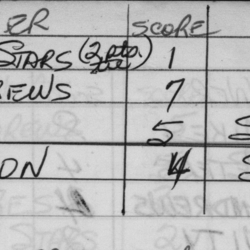 ER SCORE
STARS (2 pto. 1
EWS 7
5 S
ON 4 S